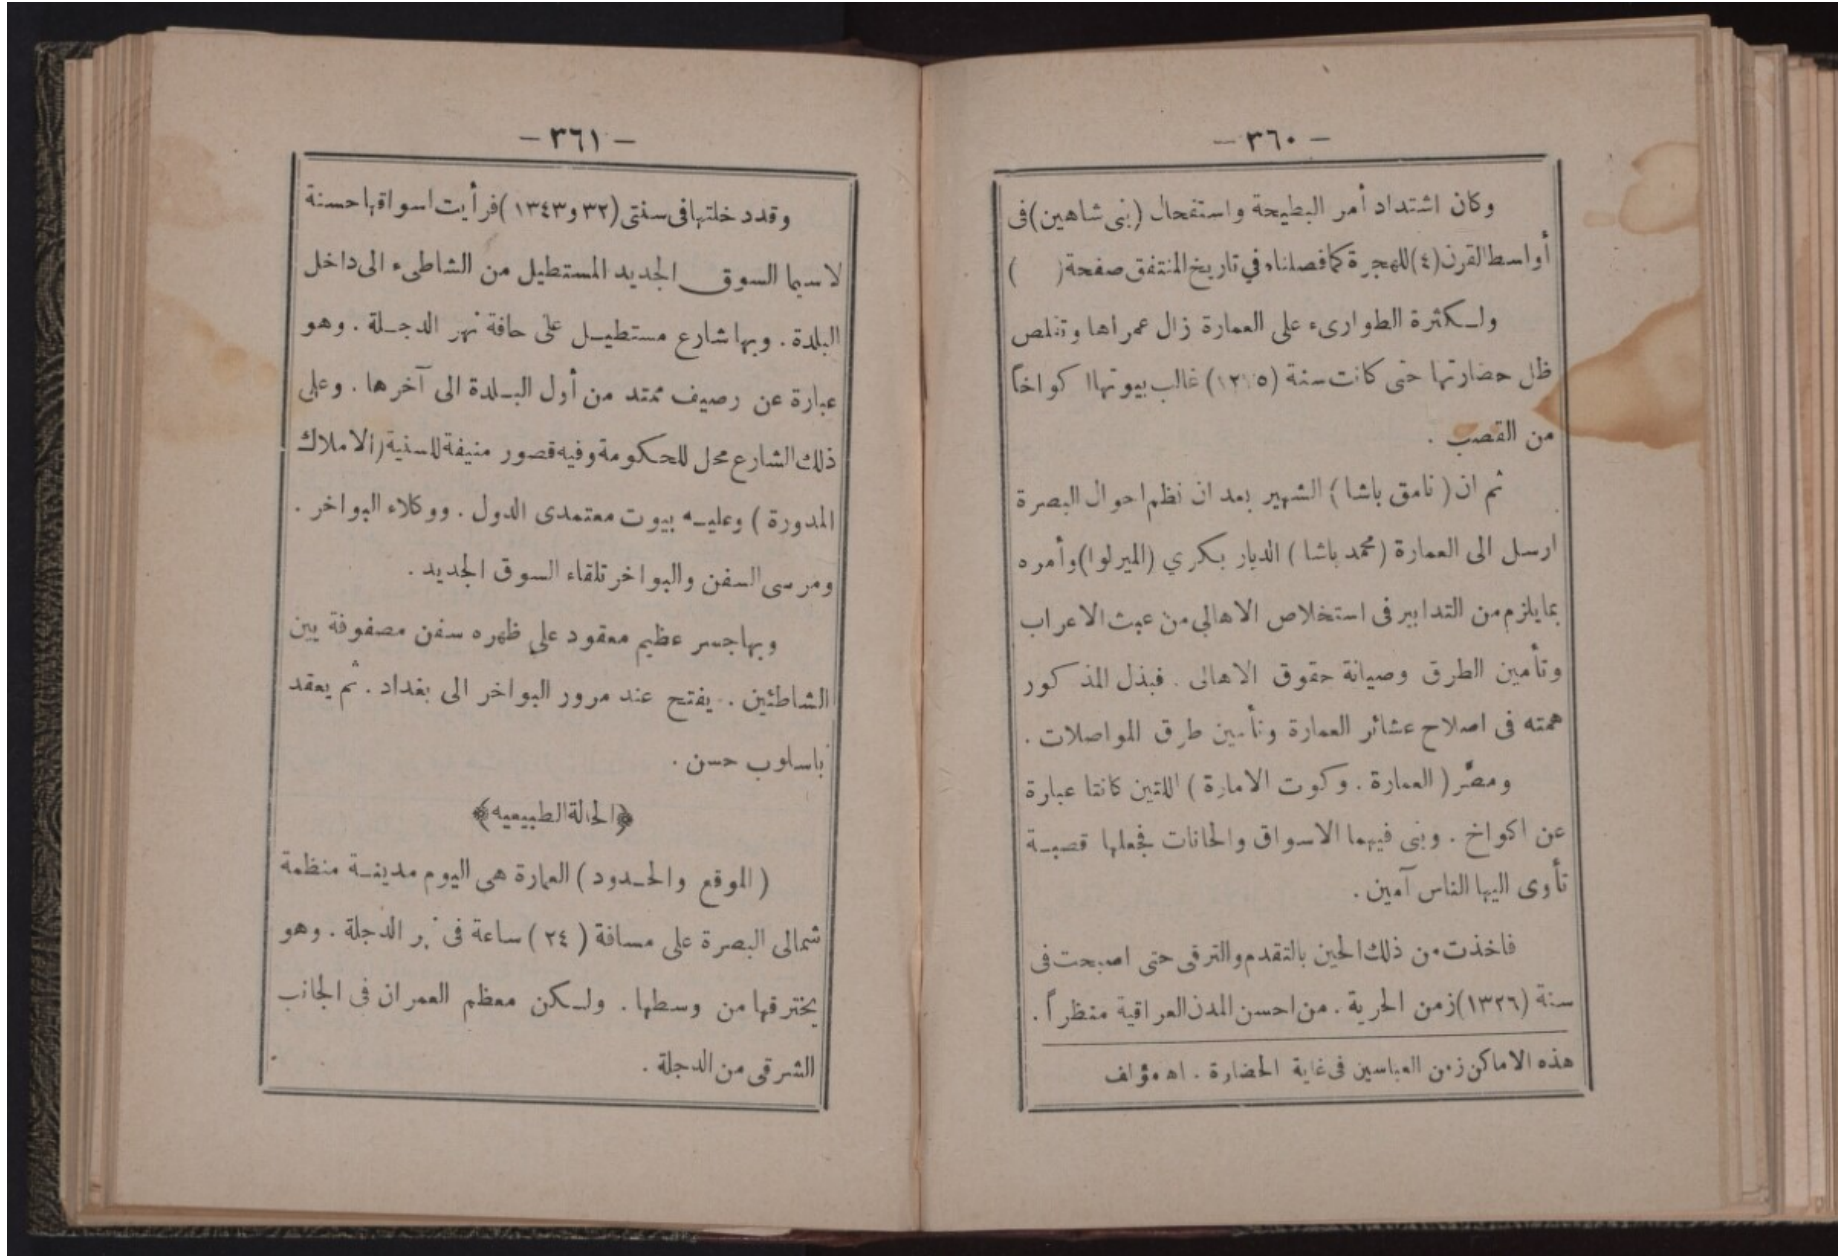 — ٣٦٠ —
وكان اشتداد أمر البطيحة واستفحال (بنى شاهين) فى
أواسط القرن (٤) للهجرة كما فصلناه في تاريخ المنتفق صفحة ( )
ولكثرة الطوارىء على العمارة زال عمرانها وتقلص
ظل حضارتها حتى كانت سنة (١٢١٥) غالب بيوتها اكواخاً
من القصب .
ثم ان ( نامق باشا ) الشهير بعد ان نظم احوال البصرة
ارسل الى العمارة (محمد باشا) الديار بكري (الميرلوا) وأمره
بما يلزم من التدابير فى استخلاص الاهالي من عبث الاعراب
وتأمين الطرق وصيانة حقوق الاهالى . فبذل المذكور
همته فى اصلاح عشائر العمارة وتأمين طرق المواصلات .
ومصّر ( العمارة . وكوت الامارة ) اللتين كانتا عبارة
عن اكواخ . وبنى فيهما الاسواق والخانات فجعلها قصبة
تأوى اليها الناس آمين .
فاخذت من ذلك الحين بالتقدم والترقى حتى اصبحت فى
سنة (١٣٢٦) زمن الحرية . من احسن المدن العراقية منظراً .
هذه الاماكن زمن العباسين فى غاية الحضارة . اه مؤلف
— ٣٦١ —
وقد دخلتها فى سنتى (٣٢ و ١٣٤٣) فرأيت اسواقها حسنة
لاسيما السوق الجديد المستطيل من الشاطىء الى داخل
البلدة . وبها شارع مستطيل على حافة نهر الدجلة . وهو
عبارة عن رصيف ممتد من أول البلدة الى آخرها . وعلى
ذلك الشارع محل للحكومة وفيه قصور منيفة للسنية (الاملاك
المدورة ) وعليه بيوت معتمدى الدول . ووكلاء البواخر .
ومرسى السفن والبواخر تلقاء السوق الجديد .
وبها جسر عظيم معقود على ظهره سفن مصفوفة بين
الشاطئين . يفتح عند مرور البواخر الى بغداد . ثم يعقد
باسلوب حسن .
﴿الحالة الطبيعيه﴾
( الموقع والحدود ) العمارة هى اليوم مدينة منظمة
شمالى البصرة على مسافة ( ٢٤ ) ساعة فى نهر الدجلة . وهو
يخترقها من وسطها . ولكن معظم العمران فى الجانب
الشرقى من الدجلة .